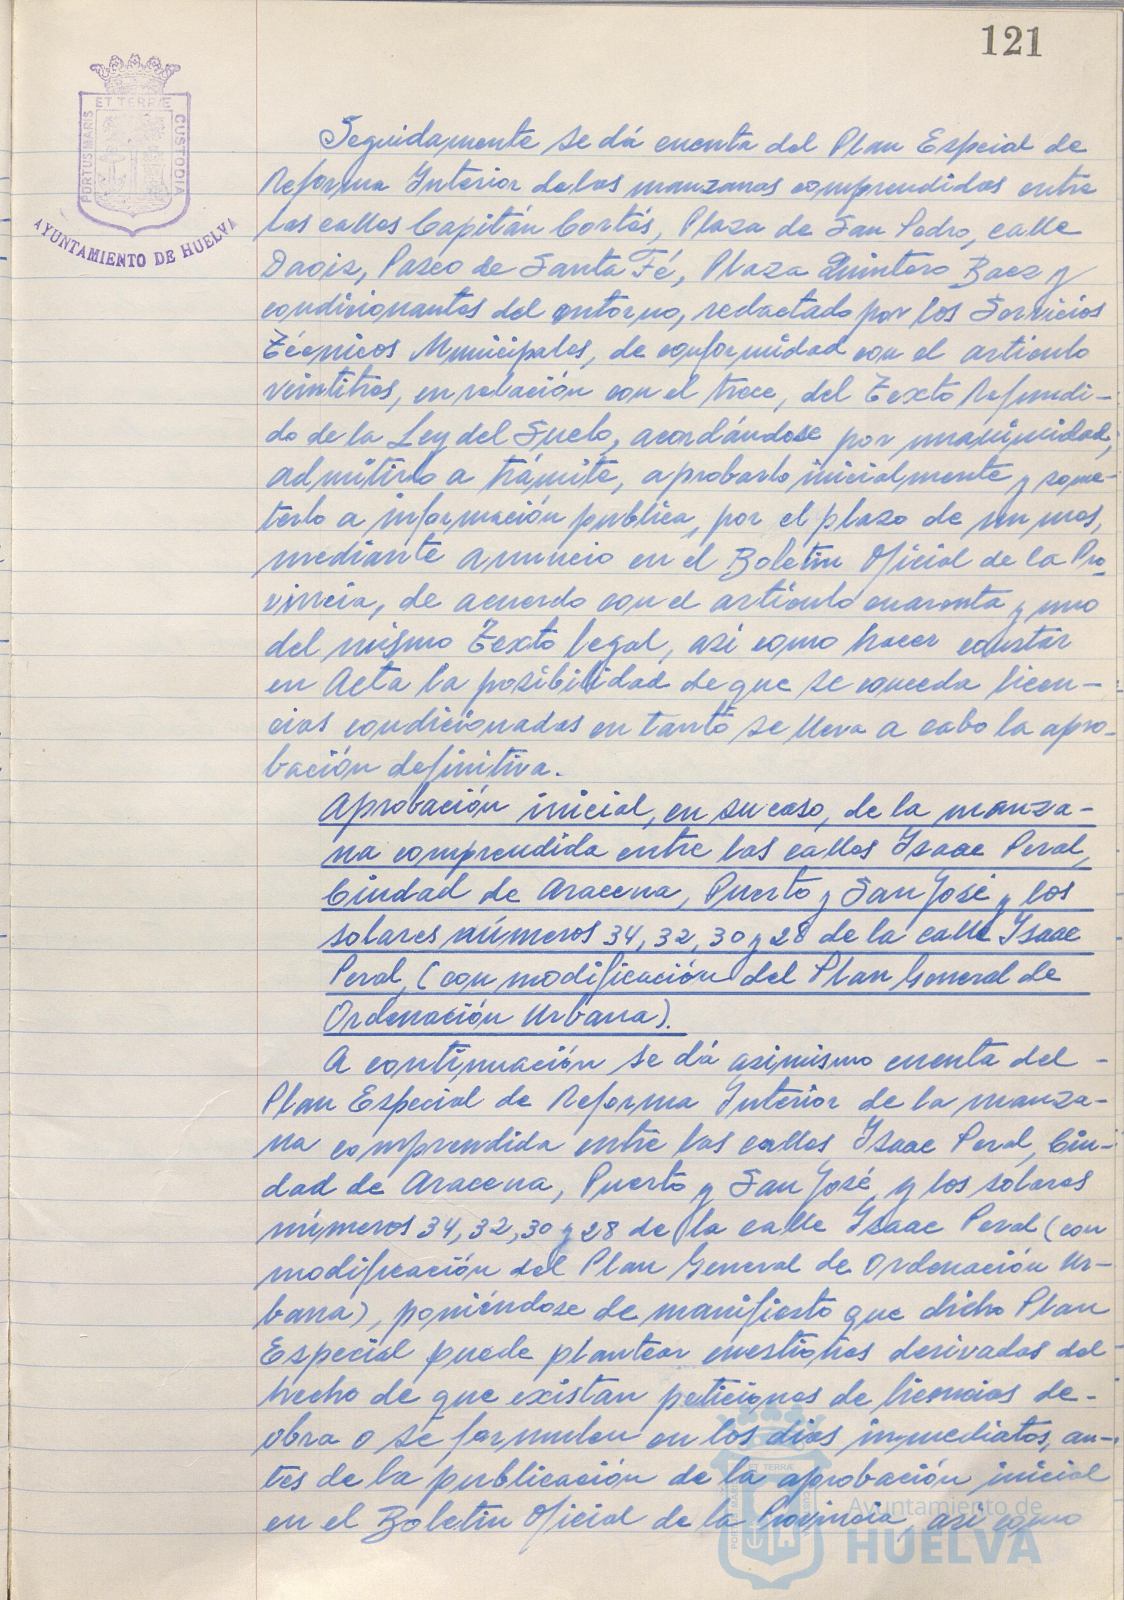 121
ET TERRÆ
PORTUS MARIS
CUSTODIA
AYUNTAMIENTO DE HUELVA
Seguidamente se dá cuenta del Plan Especial de
Reforma Interior de las manzanas comprendidas entre
las calles Capitán Cortés, Plaza de San Pedro, calle
Daoiz, Paseo de Santa Fé, Plaza Quintero Baez y
condicionantes del entorno, redactado por los Servicios
Técnicos Municipales, de conformidad con el articulo
veintitres, en relación con el trece, del Texto Refundi-
do de la Ley del Suelo, acordándose por unanimidad,
admitirlo a trámite, aprobarlo inicialmente y some-
terlo a información publica, por el plazo de un mes,
mediante anuncio en el Boletin Oficial de la Pro-
vincia, de acuerdo con el articulo cuarenta y uno
del mismo Texto legal, asi como hacer constar
en Acta la posibilidad de que se conceda licen-
cias condicionadas en tanto se lleva a cabo la apro-
bación definitiva.
Aprobación inicial, en su caso, de la manza-
na comprendida entre las calles Isaac Peral,
Ciudad de Aracena, Puerto y San José y los
solares números 34, 32, 30 y 28 de la calle Isaac
Peral, (con modificación del Plan General de
Ordenación Urbana).
A continuación se dá asimismo cuenta del -
Plan Especial de Reforma Interior de la manza-
na comprendida entre las calles Isaac Peral, Ciu-
dad de Aracena, Puerto y San José, y los solares
números 34, 32, 30 y 28 de la calle Isaac Peral (con
modificación del Plan General de Ordenación Ur-
bana), poniéndose de manifiesto que dicho Plan
Especial puede plantear cuestiones derivadas del
hecho de que existan peticiones de licencias de-
obra o se formulen en los dias inmediatos, an-
tes de la publicación de la aprobación inicial
en el Boletin Oficial de la Provincia, asi como
ET TERRÆ
PORTUS MARIS
Ayuntamiento de
HUELVA